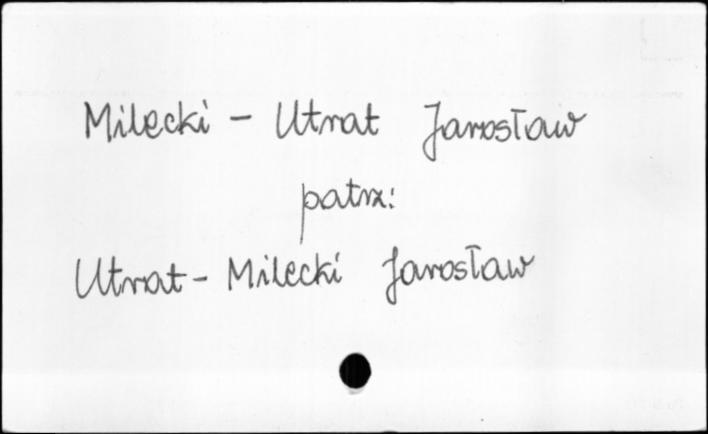 Milecki - Utrat Jarosław
patrz:
Utrat - Milecki Jarosław